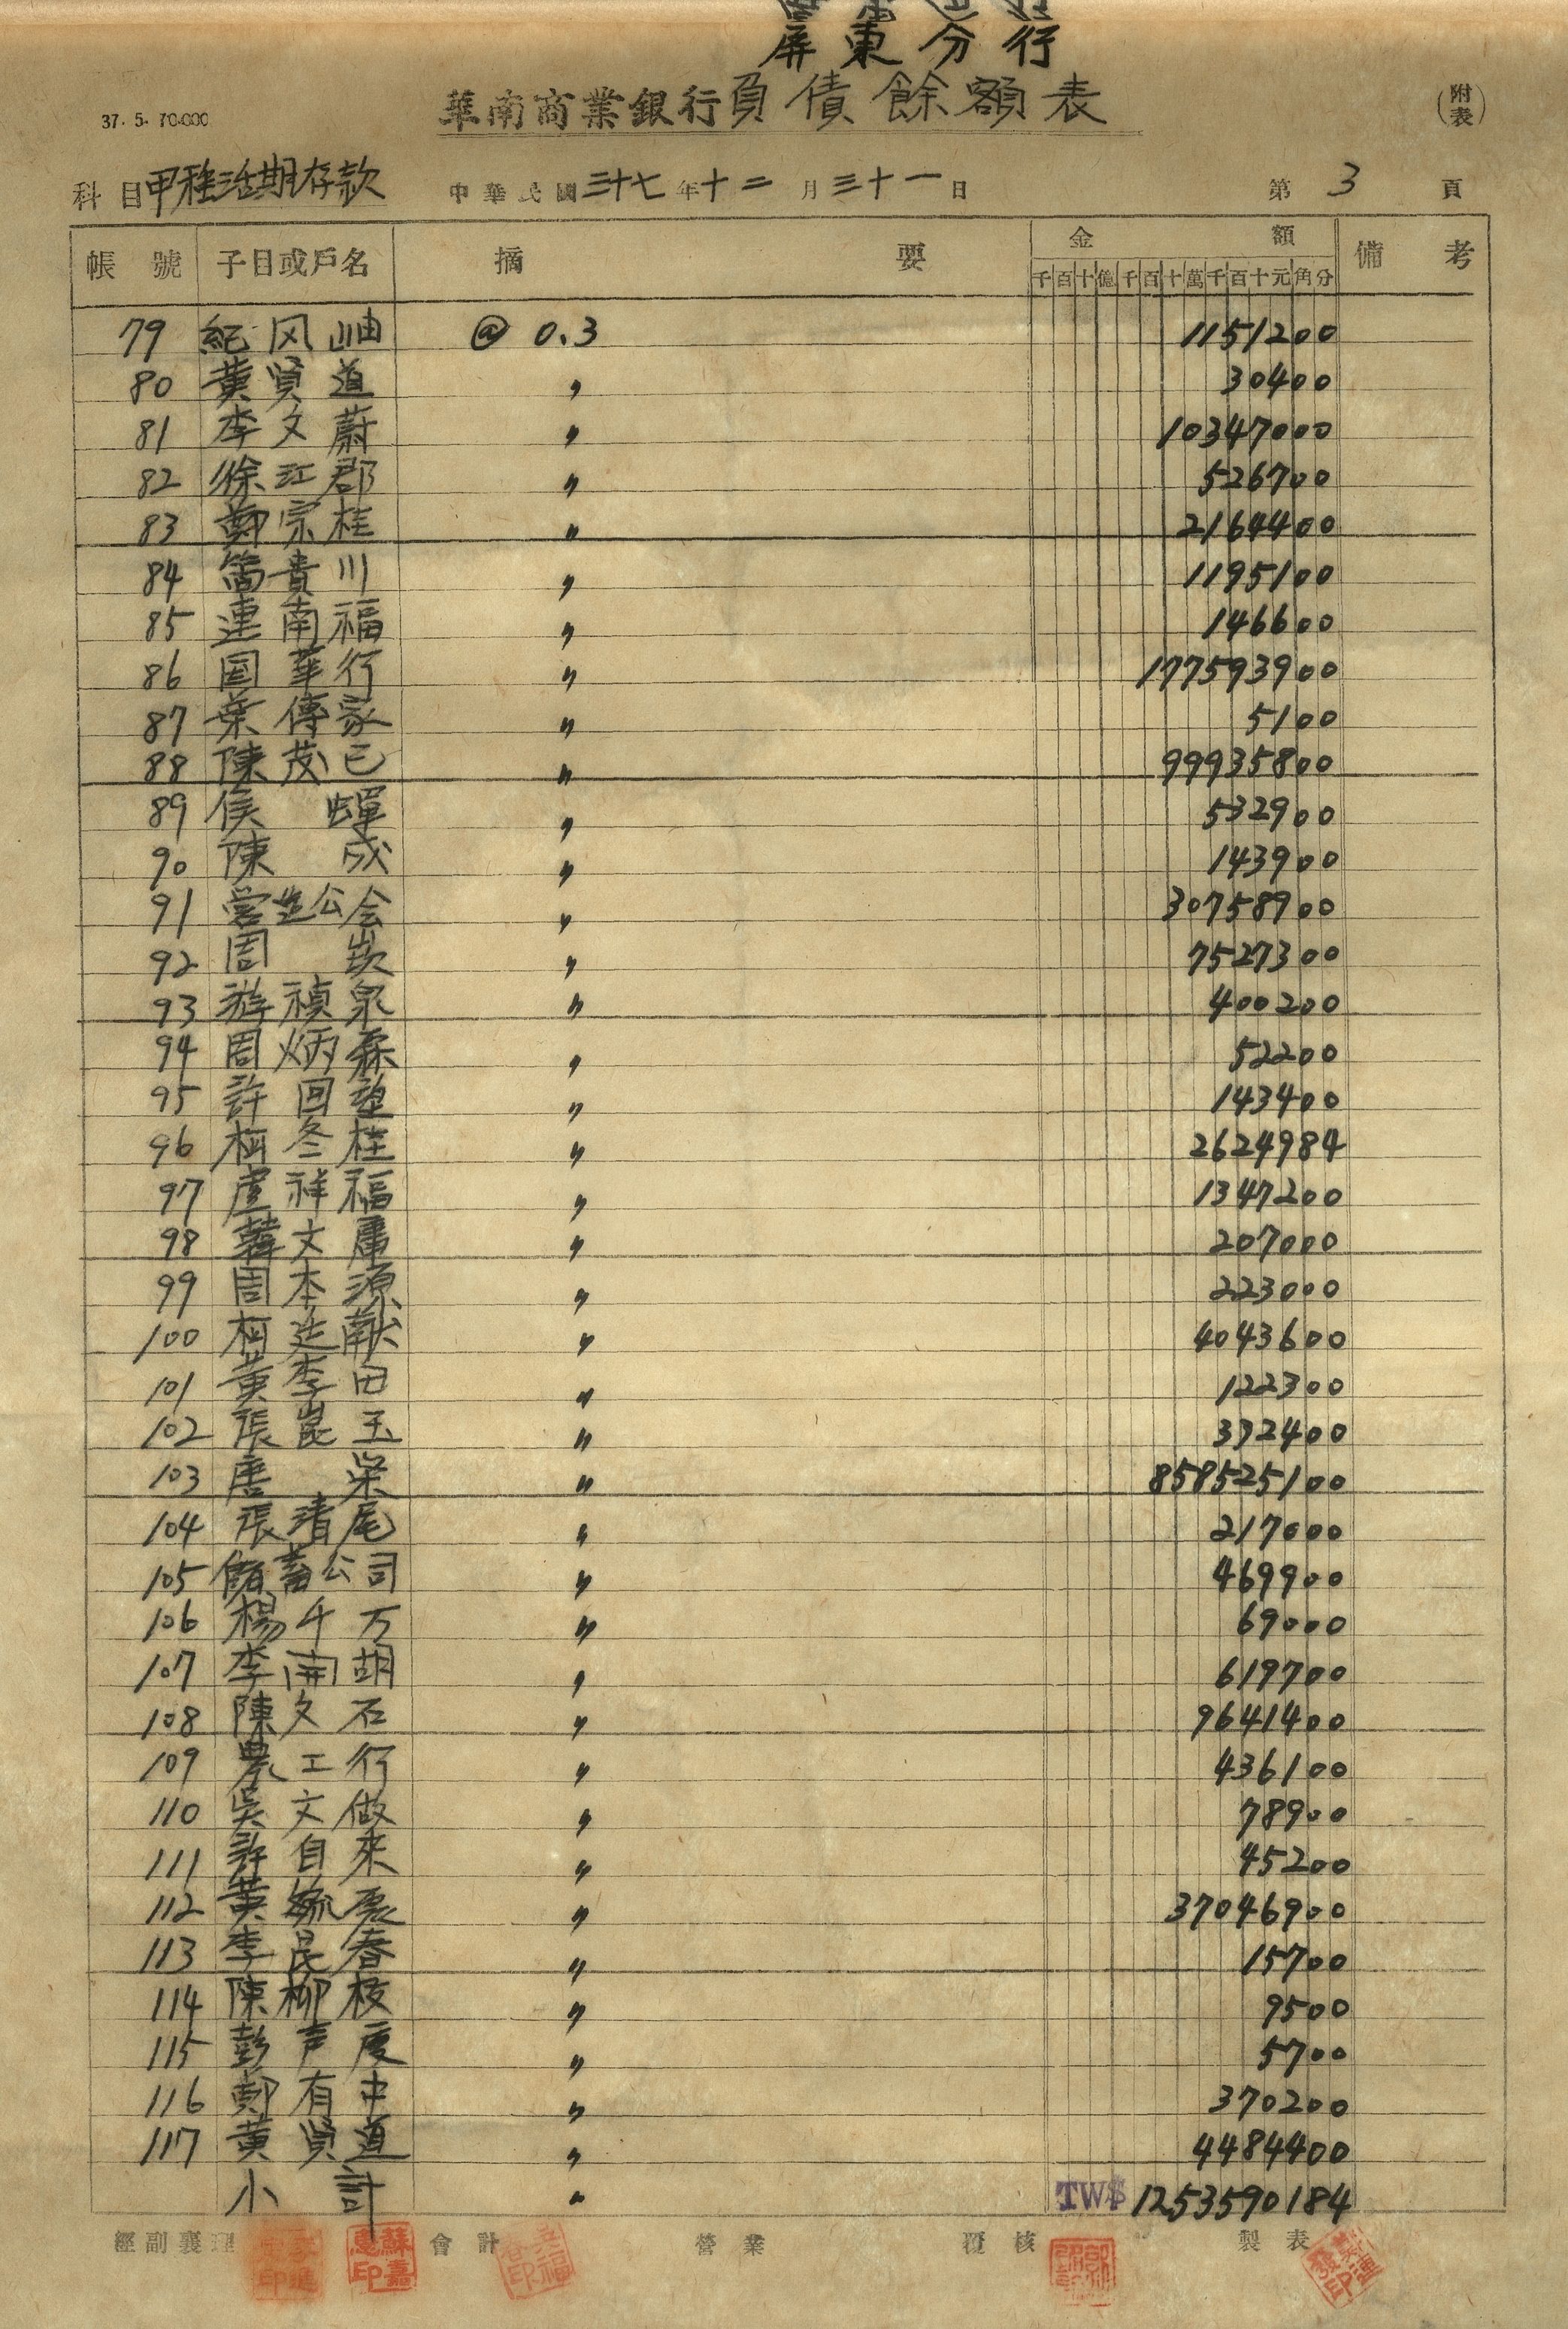 屏東分行
華南商業銀行負債餘額表
37. 5. 70.000
(附表)
科目甲種活期存款 中華民國三十七年十二月三十一日 第3頁
帳號 子目或戶名 摘要 金額 備考
千百十億千百十萬千百十元角分
79 紀风岫 @ 0.3 1151200
80 黄賢道 〃 30400
81 李文蔚 〃 10347000
82 徐江郡 〃 526700
83 鄭宗桂 〃 2164400
84 箇貴川 〃 1195100
85 連南福 〃 146600
86 国華行 〃 177593900
87 葉傳家 〃 5100
88 陳茂已 〃 99935800
89 侯蟬 〃 532900
90 陳成 〃 143900
91 营造公会 〃 30758900
92 周崁 〃 7527300
93 游禎泉 〃 400200
94 周炳霖 〃 52200
95 許回 〃 143400
96 柯冬桂 〃 2624984
97 盧祥福 〃 1347200
98 韓文 〃 207000
99 周本源 〃 223000
100 柯廷献 〃 4043600
101 黄李田 〃 122300
102 張崑玉 〃 332400
103 唐荣 〃 858525100
104 張清尾 〃 217000
105 畜公司 〃 469900
106 楊千万 〃 69000
107 李開胡 〃 619700
108 陳文石 〃 9641400
109 農工行 〃 436100
110 吳文做 〃 78900
111 許自來 〃 45200
112 黄 〃 37046900
113 李昆春 〃 15700
114 陳柳枝 〃 9500
115 彭声度 〃 5700
116 鄭有中 〃 370200
117 黄賢道 〃 4484400
小計 〃 TW$ 1253590184
經副襄理 會計 營業 覆核 製表
蘇嘉惠印